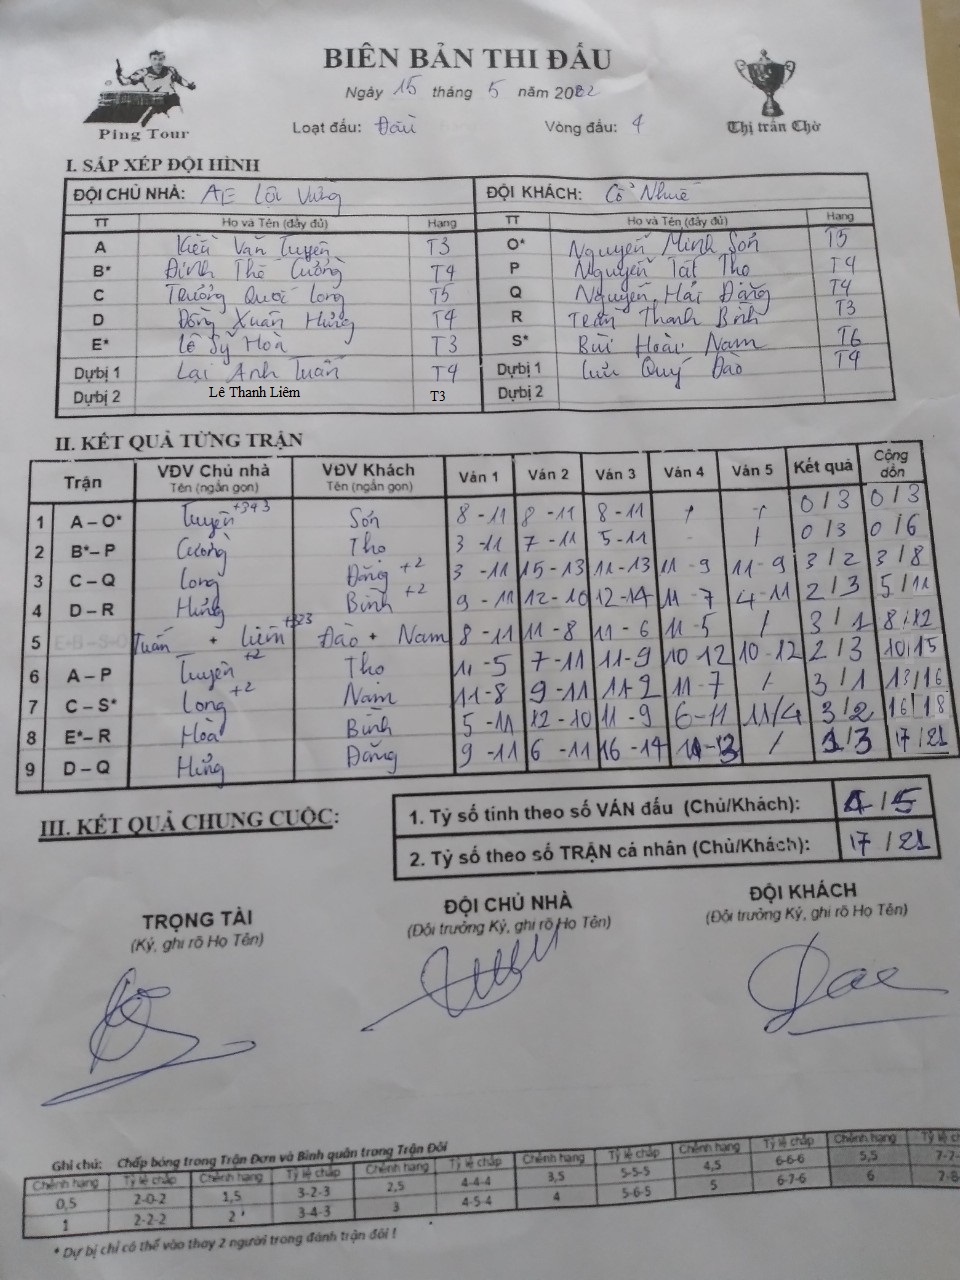 BIÊN BẢN THI ĐẤU
Ngày 15 tháng 5 năm 2022
Ping Tour
Loạt đấu: Đấu Vòng đấu: 4
Thị trấn Chờ
I. SẮP XẾP ĐỘI HÌNH
ĐỘI CHỦ NHÀ: AE Lội Vững ĐỘI KHÁCH: Cổ Nhuế
TT Họ và Tên (đầy đủ) Hạng TT Họ và Tên (đầy đủ) Hạng
A Kiều Văn Tuyên T3 O* Nguyễn Minh Sơn T5
B* Đinh Thế Cường T4 P Nguyễn Tất Thọ T4
C Trương Quốc Long T5 Q Nguyễn Hải Đăng T4
D Đồng Xuân Hưng T4 R Trần Thanh Bình T3
E* Lê Sỹ Hoà T3 S* Bùi Hoài Nam T6
Dự bị 1 Lại Anh Tuấn T4 Dự bị 1 Lưu Quý Đào T4
Dự bị 2 Lê Thanh Liêm T3 Dự bị 2
II. KẾT QUẢ TỪNG TRẬN
Trận VĐV Chủ nhà Tên (ngắn gọn) VĐV Khách Tên (ngắn gọn) Ván 1 Ván 2 Ván 3 Ván 4 Ván 5 Kết quả Cộng dồn
1 A – O* Tuyên +343 Sơn 8 - 11 8 - 11 8 - 11 / / 0/3 0/3
2 B* – P Cường Thọ 3 - 11 7 - 11 5 - 11 - / 0/3 0/6
3 C – Q Long Đăng +2 3 - 11 15 - 13 11 - 13 11 - 9 11 - 9 3/2 3/8
4 D – R Hưng Bình +2 9 - 11 12 - 10 12 - 14 11 - 7 4 - 11 2/3 5/11
5 Tuấn + Liêm +323 Đào + Nam 8 - 11 11 - 8 11 - 6 11 - 5 / 3/1 8/12
6 A – P Tuyên +2 Thọ 11 - 5 7 - 11 11 - 9 10 12 10 - 12 2/3 10/15
7 C – S* Long +2 Nam 11 - 8 9 - 11 11 - 9 11 - 7 / 3/1 13/16
8 E* – R Hòa Bình 5 - 11 12 - 10 11 - 9 6 - 11 11/4 3/2 16/18
9 D – Q Hưng Đăng 9 - 11 6 - 11 16 - 14 11 - 13 / 1/3 17/21
III. KẾT QUẢ CHUNG CUỘC:
1. Tỷ số tính theo số VÁN đấu (Chủ/Khách): 4/5
2. Tỷ số theo số TRẬN cá nhân (Chủ/Khách): 17/21
TRỌNG TÀI ĐỘI CHỦ NHÀ ĐỘI KHÁCH
(Ký, ghi rõ Họ Tên) (Đội trưởng Ký, ghi rõ Họ Tên) (Đội trưởng Ký, ghi rõ Họ Tên)
Ghi chú: Chấp bóng trong Trận Đơn và Bình quân trong Trận Đôi
Chênh hạng Tỷ lệ chấp Chênh hạng Tỷ lệ chấp Chênh hạng Tỷ lệ chấp Chênh hạng Tỷ lệ chấp Chênh hạng Tỷ lệ chấp Chênh hạng
0,5 2-0-2 1,5 3-2-3 2,5 4-4-4 3,5 5-5-5 4,5 6-6-6 5,5
1 2-2-2 2 3-4-3 3 4-5-4 4 5-6-5 5 6-7-6 6
* Dự bị chỉ có thể vào thay 2 người trong đánh trận đôi !